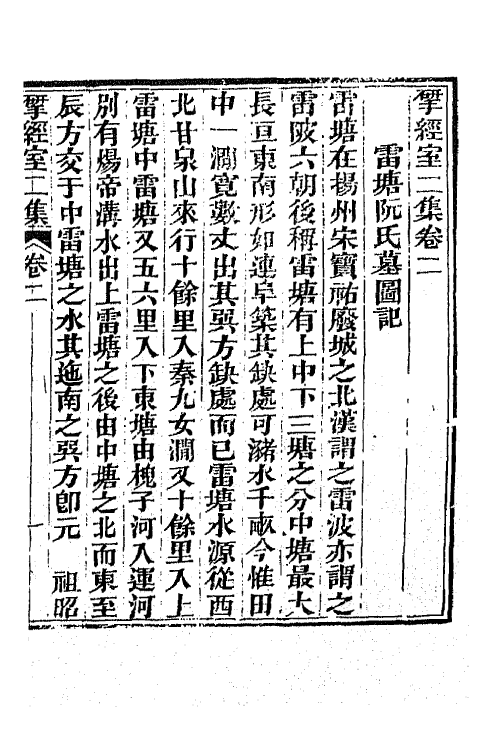 揅經室二集卷二
雷塘阮氏墓圖記
雷塘在揚州宋寶祐廢城之北漢謂之雷波亦謂之
雷陂六朝後稱雷塘有上中下三塘之分中塘最大
長亘東南形如連阜築其缺處可瀦水千畝今惟田
中一澗寬數丈出其巽方缺處而已雷塘水源從西
北甘泉山來行十餘里入秦九女澗又十餘里入上
雷塘中雷塘又五六里入下東塘由槐子河入運河
別有煬帝溝水出上雷塘之後由中塘之北而東至
辰方交于中雷塘之水其迤南之巽方卽元 祖昭
揅經室二集 卷二 一